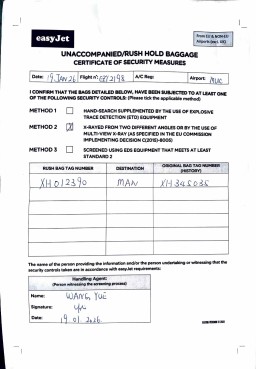 easyJet
From EU & NON-EU
Airports (incl. UK)
UNACCOMPANIED/RUSH HOLD BAGGAGE
CERTIFICATE OF SECURITY MEASURES
Date: 19 JAN 26 Flight n°: EZY2198 A/C Reg: Airport: MUC
I CONFIRM THAT THE BAGS DETAILED BELOW, HAVE BEEN SUBJECTED TO AT LEAST ONE
OF THE FOLLOWING SECURITY CONTROLS: (Please tick the applicable method)
METHOD 1 HAND-SEARCH SUPPLEMENTED BY THE USE OF EXPLOSIVE
TRACE DETECTION (ETD) EQUIPMENT
METHOD 2 X-RAYED FROM TWO DIFFERENT ANGLES OR BY THE USE OF
MULTI-VIEW X-RAY (AS SPECIFIED IN THE EU COMMISSION
IMPLEMENTING DECISION C(2015)-8005)
METHOD 3 SCREENED USING EDS EQUIPMENT THAT MEETS AT LEAST
STANDARD 2
RUSH BAG TAG NUMBER DESTINATION ORIGINAL BAG TAG NUMBER
(HISTORY)
XH012390 MAN XH345035
The name of the person providing the information and/or the person undertaking or witnessing that the
security controls taken are in accordance with easyJet requirements:
Handling Agent:
(Person witnessing the screening process)
Name: WANG, YUE
Signature:
Date: 19 01. 2026